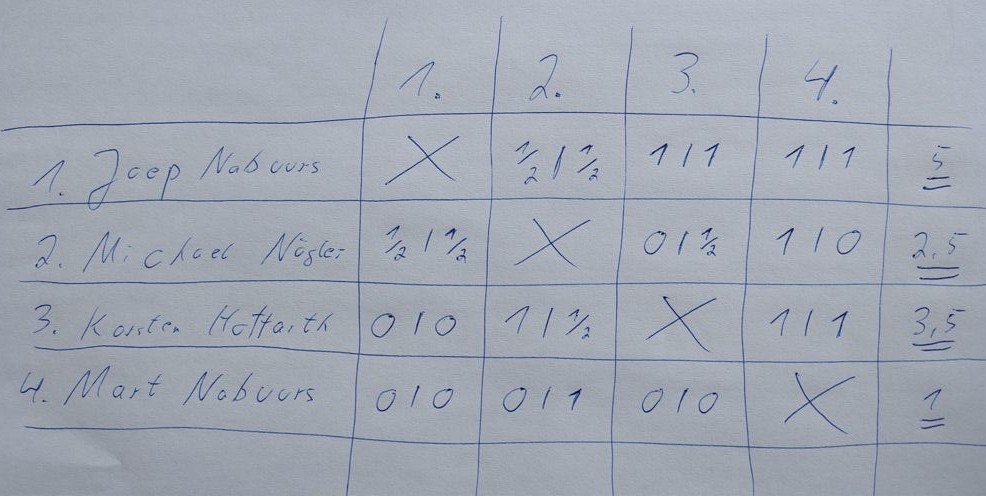 1. 2. 3. 4.
1. Joep Nabuurs X ½ | ½ 1 | 1 1 | 1 5
2. Michael Nägler ½ | ½ X 0 | ½ 1 | 0 2,5
3. Karsten Hoffarth 0 | 0 1 | ½ X 1 | 1 3,5
4. Mart Nabuurs 0 | 0 0 | 1 0 | 0 X 1